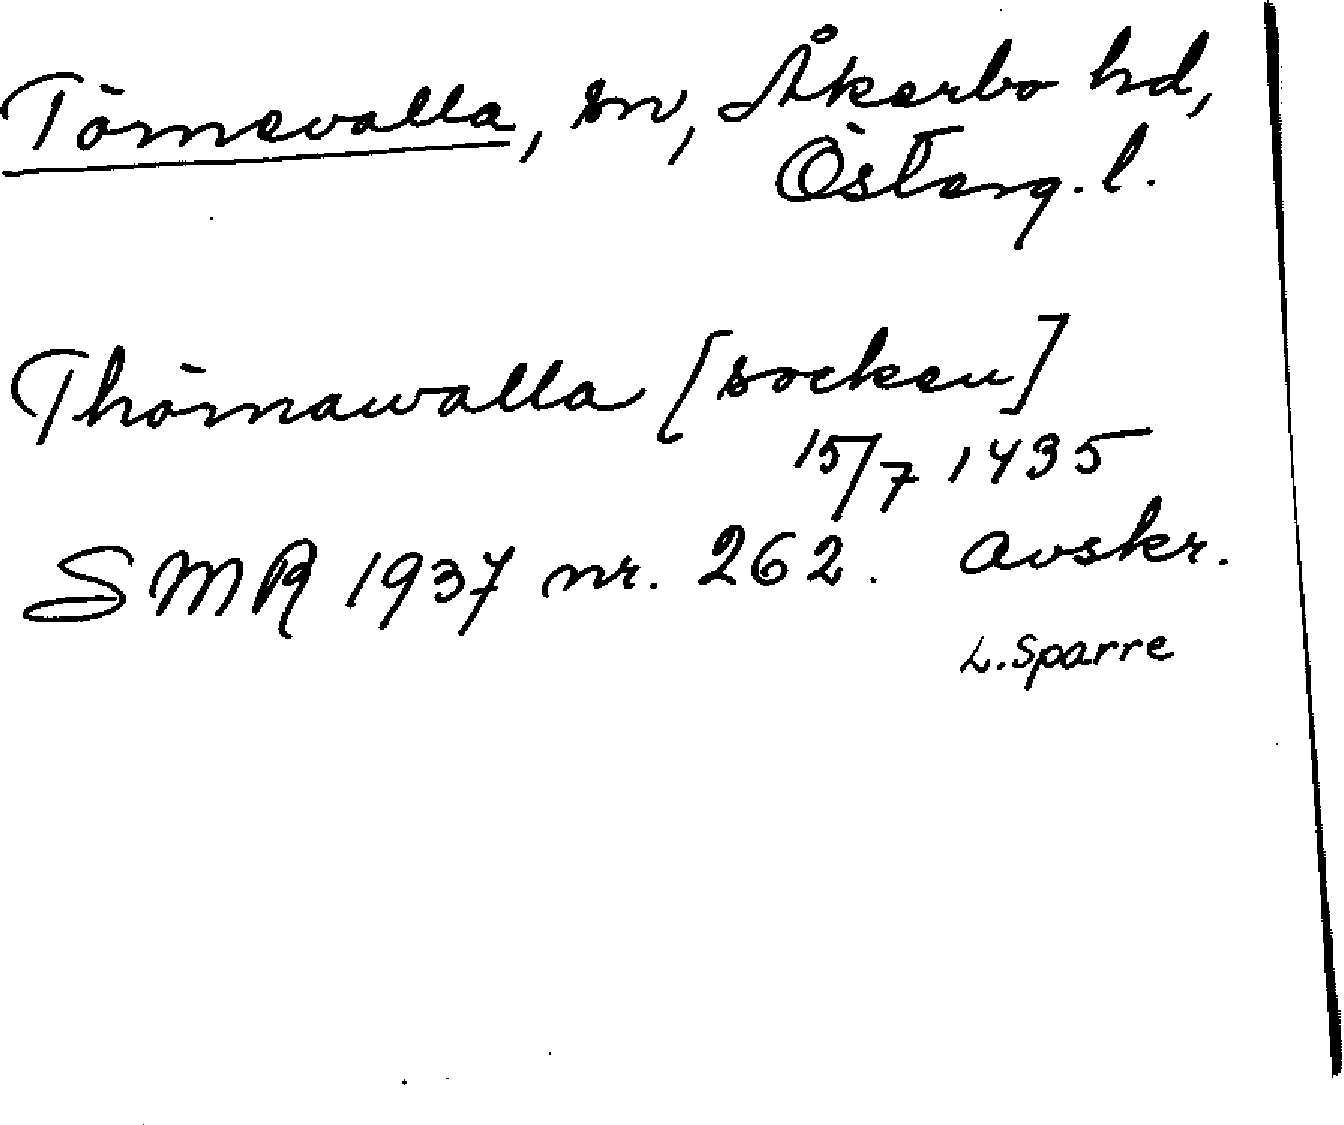 Törnevalla, sn, Åkerbo hd,
Österg. l.
Thörnawalla [socken]
15/7 1435
SMR 1937 nr. 262. Avskr.
L. Sparre